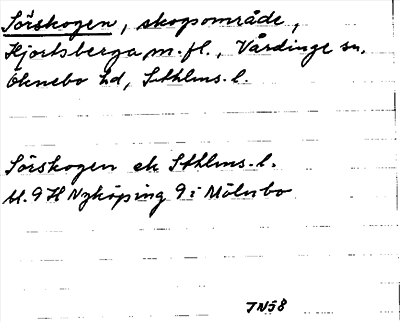 Sörskogen, skogsområde,
Hjortsberga m.fl., Vårdinge sn.
Öknebo hd, Sthlms. l.
Sörskogen ek Sthlms. l.
bl. 9 H Nyköping 9i Mölnbo
JN58